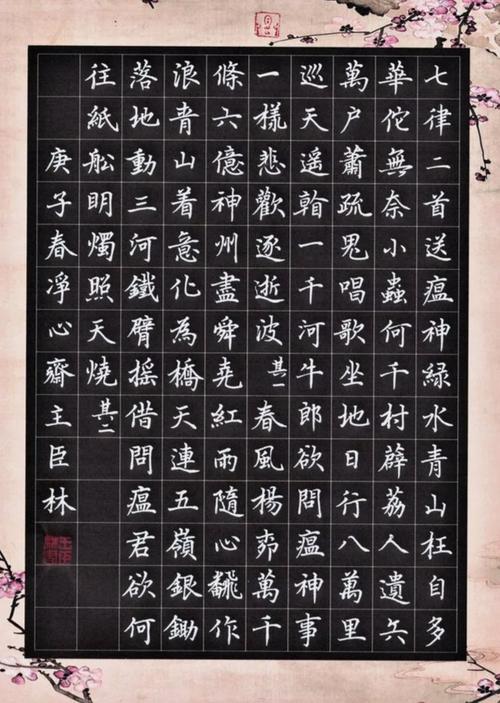 七律二首送瘟神綠水青山枉自多
華佗無奈小蟲何千村薜荔人遺矢
萬户蕭疏鬼唱歌坐地日行八萬里
巡天遥看一千河牛郎欲問瘟神事
一樣悲歡逐逝波其一春風楊柳萬千
條六億神州盡舜堯紅雨隨心翻作
浪青山着意化為橋天連五嶺銀鋤
落地動三河鐵臂摇借問瘟君欲何
往紙船明燭照天燒其二
庚子春凈心齋主臣林